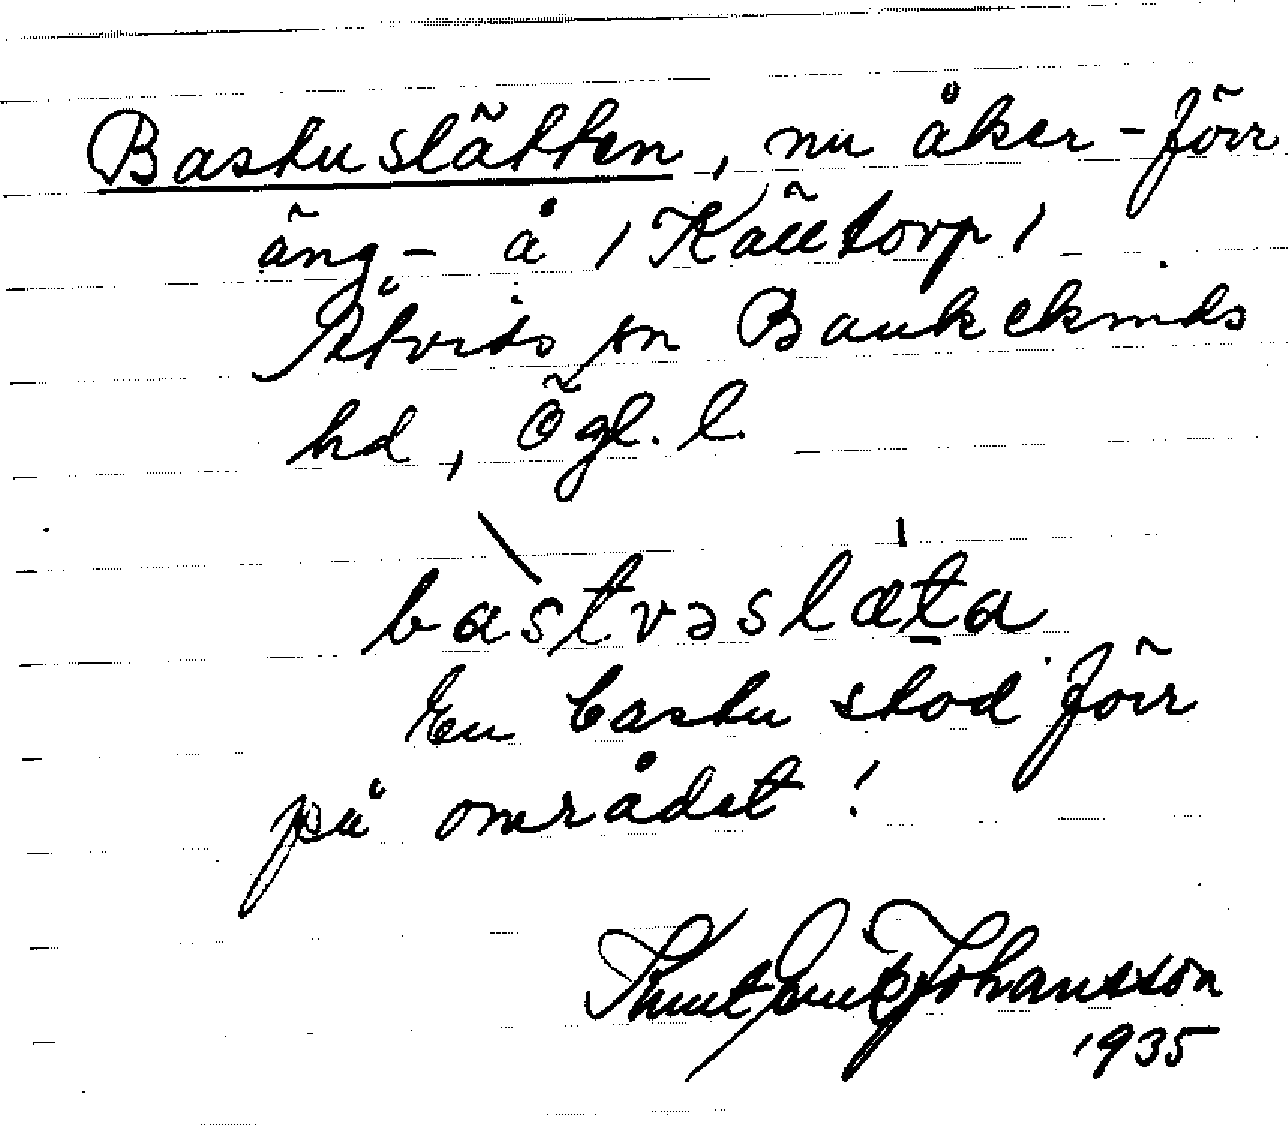 Bastuslätten, nu åker - förr
äng - å / Källtorp /
Åtvids sn Bankekinds
hd, Ögl. l.
bastvəslæta
En bastu stod förr
på området!
Knut Johansson
1935